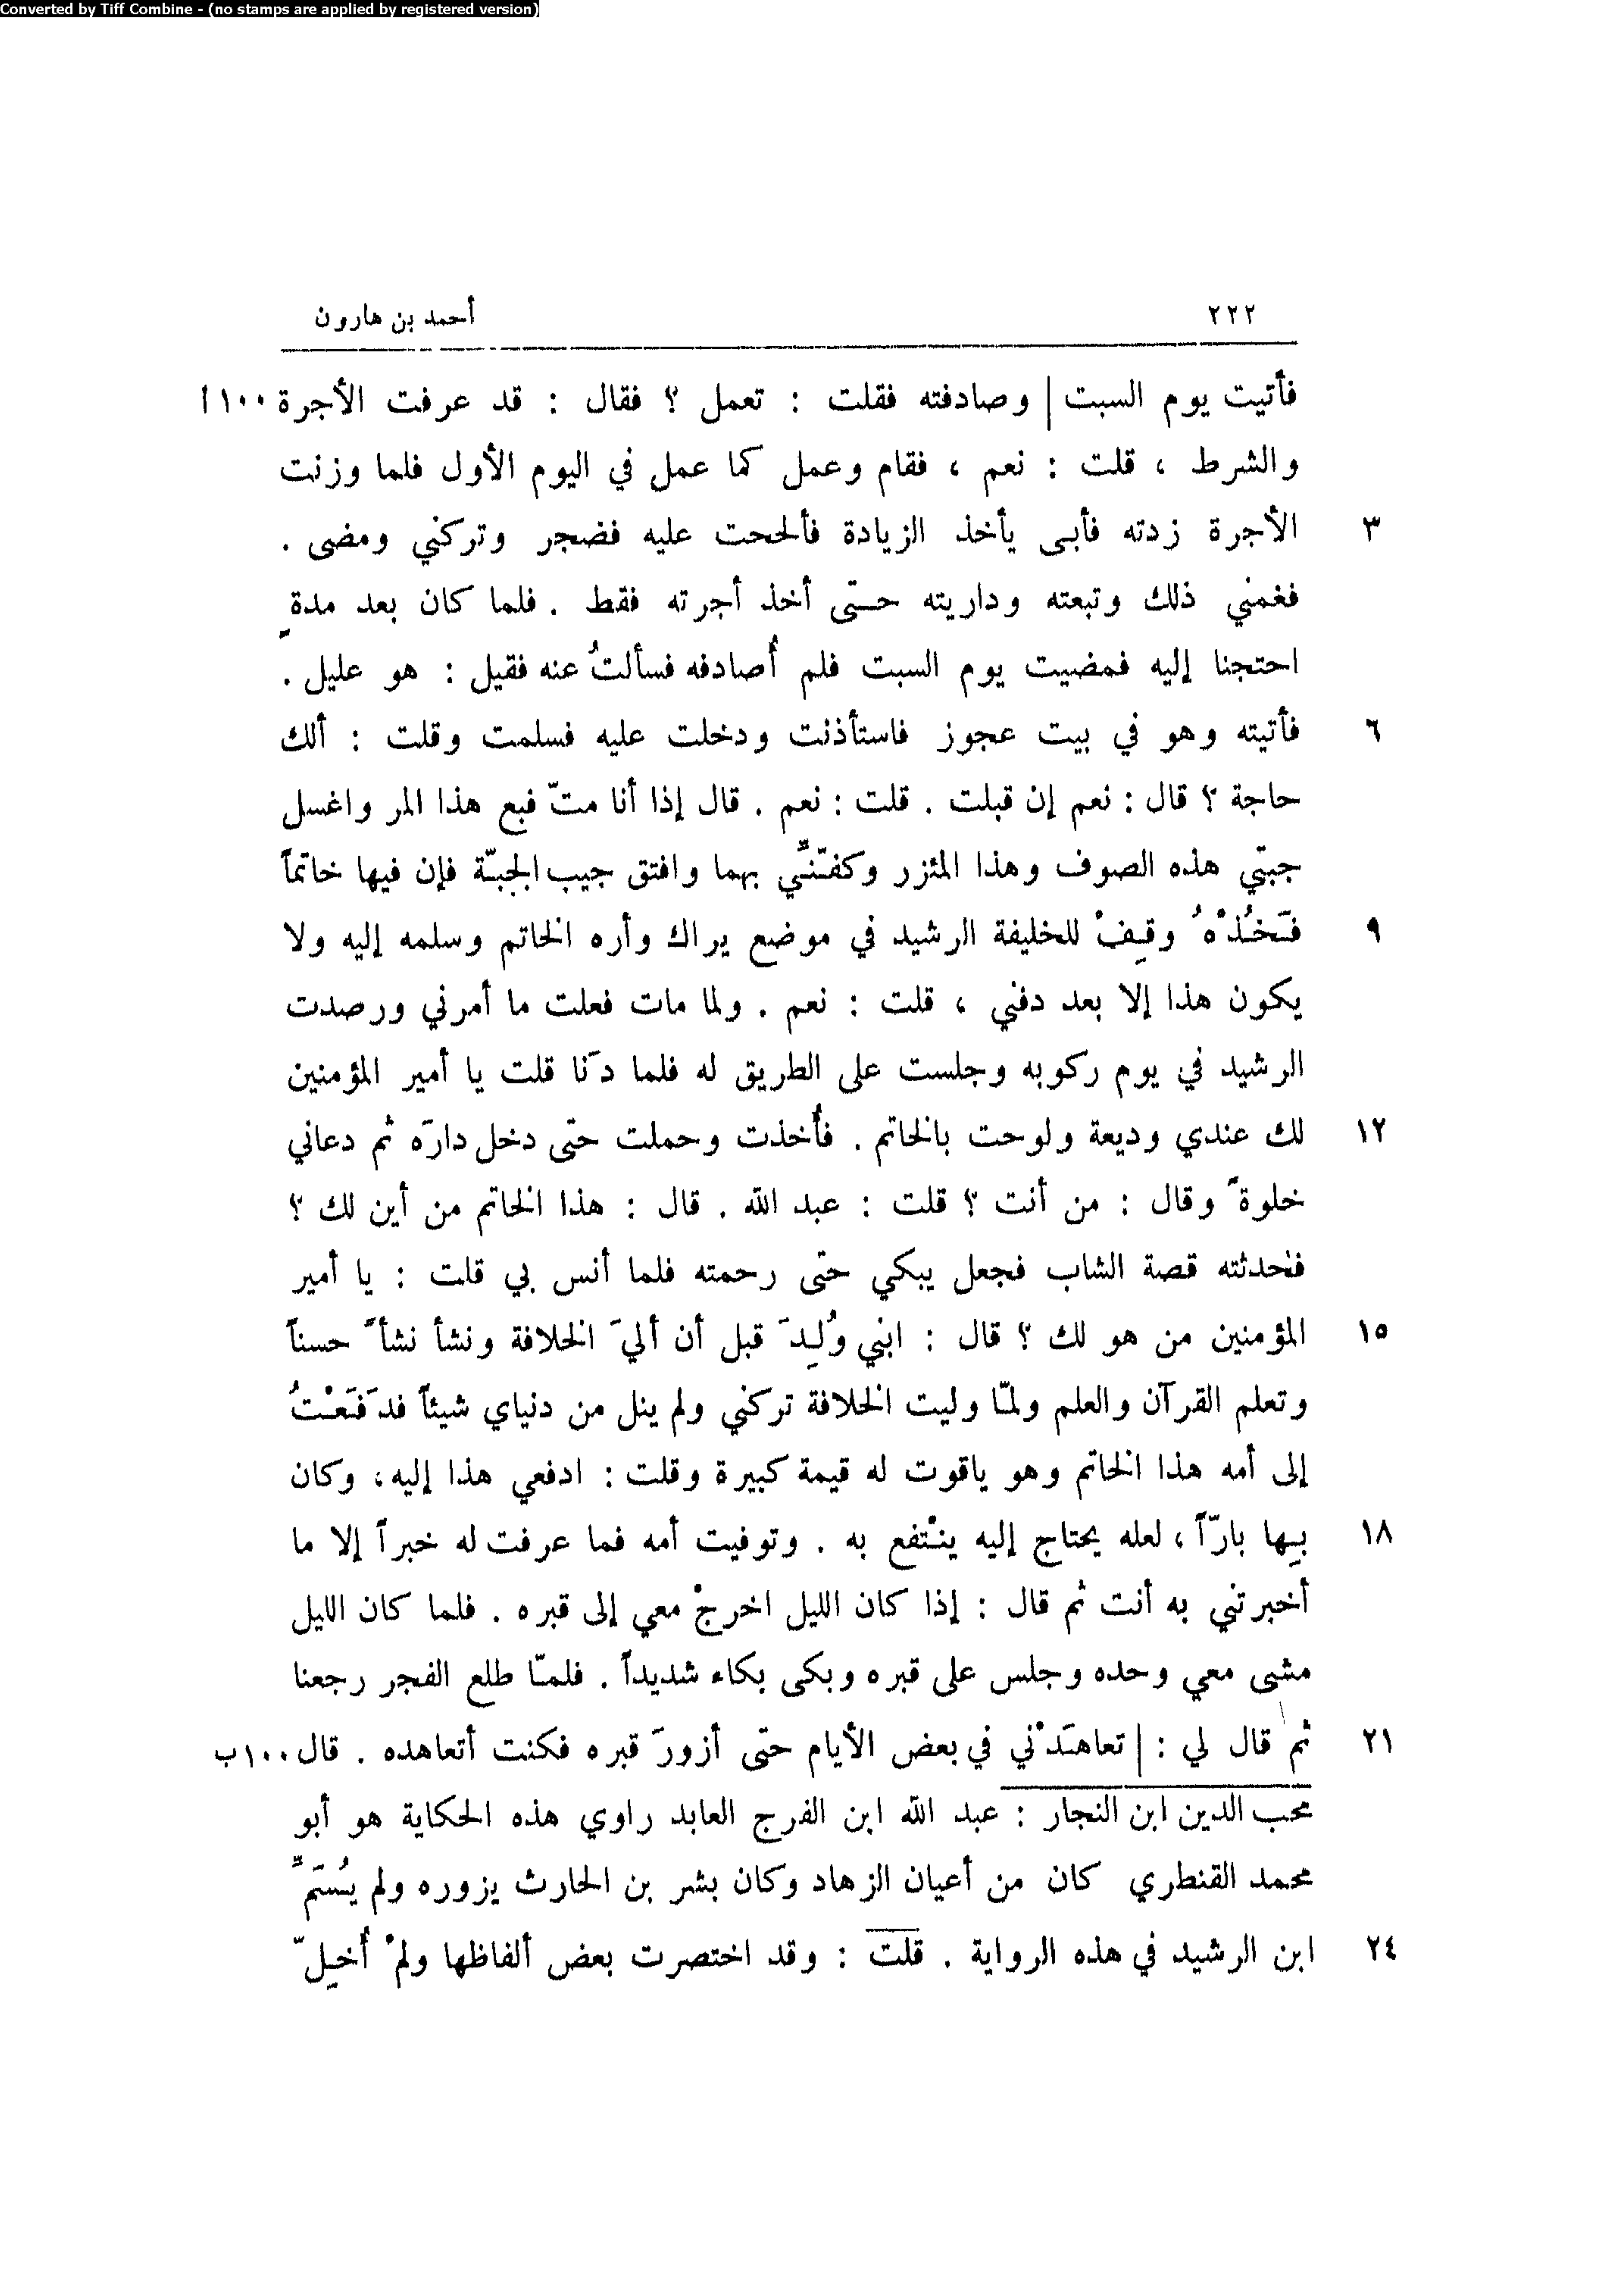 Converted by Tiff Combine - (no stamps are applied by registered version)
٢٢٢ أحمد بن هارون
فأتيت يوم السبت | وصادفته فقلت : تعمل ؟ فقال : قد عرفت الأجرة ١٠٠ا
والشرط ، قلت : نعم ، فقام وعمل كما عمل في اليوم الأول فلما وزنت
٣ الأجرة زدته فأبى يأخذ الزيادة فألححت عليه فضجر وتركني ومضى .
فغمني ذلك وتبعته وداريته حتّى أخذ أجرته فقط . فلما كان بعد مدةٍ
احتجنا إليه فمضيت يوم السبت فلم أُصادفه فسألتُ عنه فقيل : هو عليل .
٦ فأتيته وهو في بيت عجوز فاستأذنت ودخلت عليه فسلمت وقلت : ألك
حاجة ؟ قال : نعم إن قبلت . قلت : نعم . قال إذا أنا متّ فبع هذا المر واغسل
جبتي هذه الصوف وهذا المئزر وكفّنّي بهما وافتق جيب الجبّة فإن فيها خاتماً
٩ فَخُذْهُ وقِفْ للخليفة الرشيد في موضع يراك وأره الخاتم وسلمه إليه ولا
يكون هذا إلا بعد دفني ، قلت : نعم . ولما مات فعلت ما أمرني ورصدت
الرشيد في يوم ركوبه وجلست على الطريق له فلما دَنا قلت يا أمير المؤمنين
١٢ لك عندي وديعة ولوحت بالخاتم . فأُخذت وحملت حتى دخل دارَه ثم دعاني
خلوةً وقال : من أنت ؟ قلت : عبد الله . قال : هذا الخاتم من أين لك ؟
فحدثته قصة الشاب فجعل يبكي حتى رحمته فلما أنس بي قلت : يا أمير
١٥ المؤمنين من هو لك ؟ قال : ابني وُلِدَ قبل أن أليَ الخلافة ونشأ نشأً حسناً
وتعلم القرآن والعلم ولمّا وليت الخلافة تركني ولم ينل من دنياي شيئاً فدَفَعْتُ
إلى أمه هذا الخاتم وهو ياقوت له قيمة كبيرة وقلت : ادفعي هذا إليه، وكان
١٨ بِها بارّاً ، لعله يحتاج إليه ينْتفع به . وتوفيت أمه فما عرفت له خبراً إلا ما
أخبرتني به أنت ثم قال : إذا كان الليل اخرجْ معي إلى قبره . فلما كان الليل
مشى معي وحده وجلس على قبره وبكى بكاء شديداً . فلمّا طلع الفجر رجعنا
٢١ ثم قال لي : | تعاهَدْني في بعض الأيام حتّى أزورَ قبره فكنت أتعاهده . قال ١٠٠ب
محب الدين ابن النجار : عبد الله ابن الفرج العابد راوي هذه الحكاية هو أبو
محمد القنطري كان من أعيان الزهاد وكان بشر بن الحارث يزوره ولم يُسَمِّ
٢٤ ابن الرشيد في هذه الرواية . قلت : وقد اختصرت بعض ألفاظها ولمْ أُخِلّ